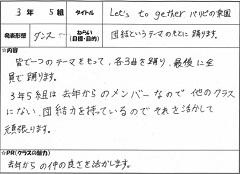 3年 5組 タイトル Let's to gether パリピの楽園
発表形態 ダンス ねらい(目標・目的) 団結というテーマのもとに踊ります。
☆内容
皆で一つのテーマをもって、各3曲を踊り、最後に全
員で踊ります。
3年5組は去年からのメンバーなので他のクラス
にない、団結力を持っているのでそれを活かして
頑張ります。
☆PR(クラスの魅力)
去年からの仲の良さを活かします。